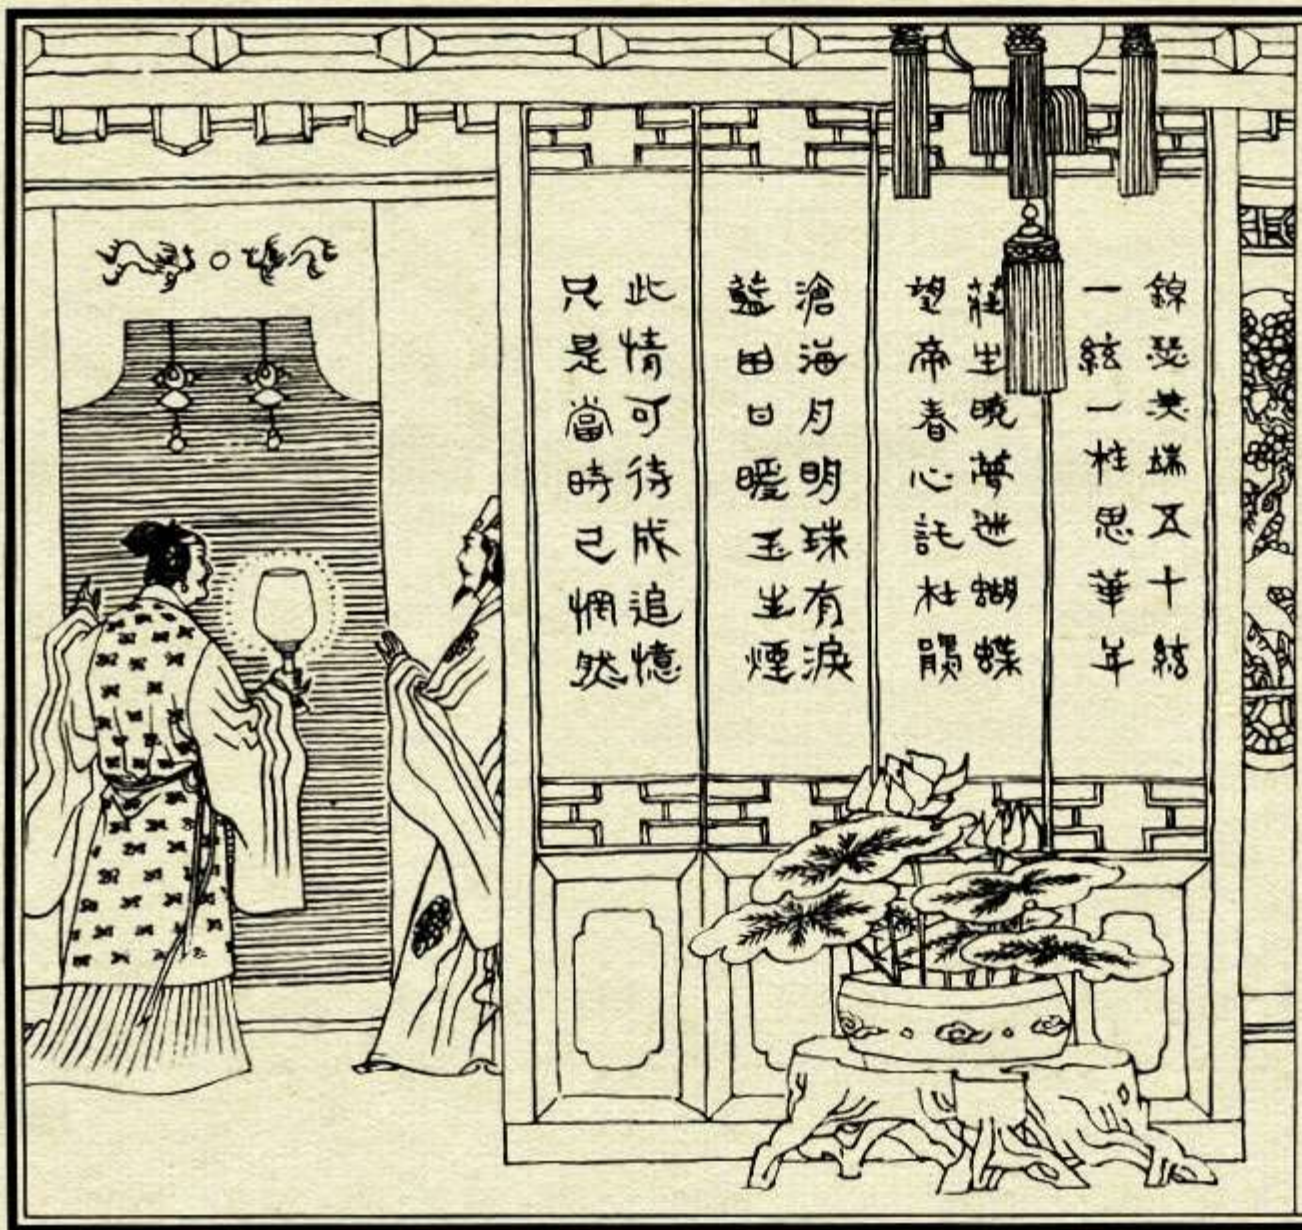 錦瑟无端五十絃
一絃一柱思華年
莊生曉夢迷蝴蝶
望帝春心託杜鵑
滄海月明珠有淚
藍田日暖玉生煙
此情可待成追憶
只是當時已惘然